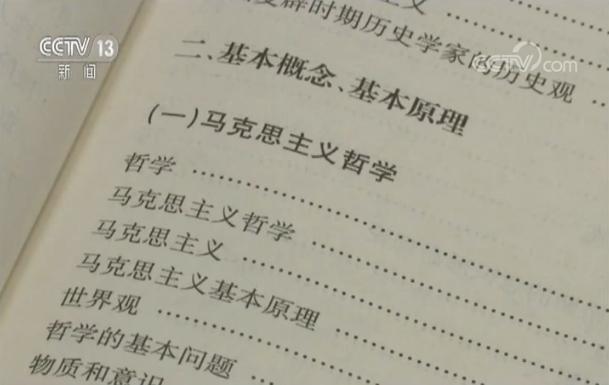 CCTV 13
新闻
CCTV.com
主义
时期历史学家的历史观 ……
二、基本概念、基本原理
(一)马克思主义哲学
哲学 ……
马克思主义哲学 ……
马克思主义 ……
马克思主义基本原理 ……
世界观 ……
哲学的基本问题 ……
物质和意识